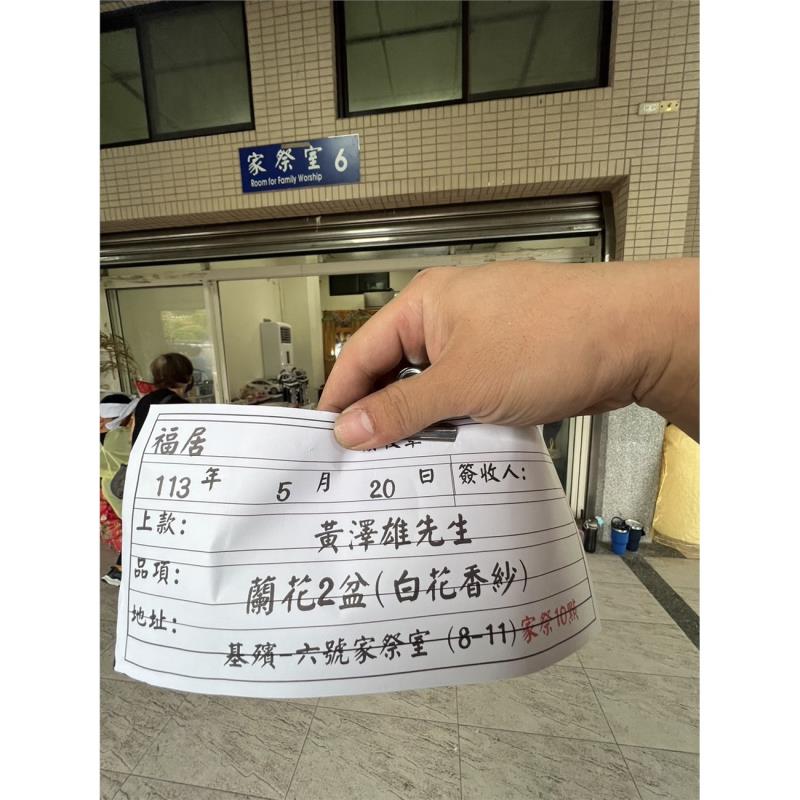 家祭室 6
Room for Family Worship
福居
113 年 5 月 20 日 簽收人:
上款: 黃澤雄先生
品項: 蘭花2盆(白花香紗)
地址: 基殯-六號家祭室 (8-11) 家祭10點